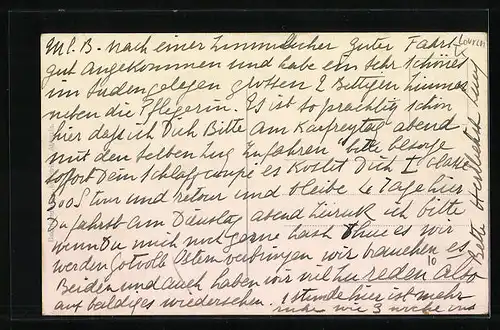 M.l. B. nach einer Zimmlicher guter Fahrt
gut angekommen und habe ein sehr schönes
im Süden gelegen grossen 2 Bettigen Zimmer
neben die Pflegerin. Es ist so prachtig schön
hier dass ich Dich Bitte am Karfreytag abend
mit den selben Zug Zufahren bitte besorge
sofort Dein Schlafcoupe es Kostet Dich I Classe
500 S tour und retour und bleibe 4 Tage hier
Du fahrst am Dienstag abend zuruk ich bitte
wenn Du mich nur gerne hast thue es wir
werden Gotvolle Ostern verbringen wir brauchen es
Beiden und auch haben wir viel zu reden also
auf baldiges wiedersehen. 1 stunde hier ist mehr
ruhe wie 3 woche und
Bitte
10